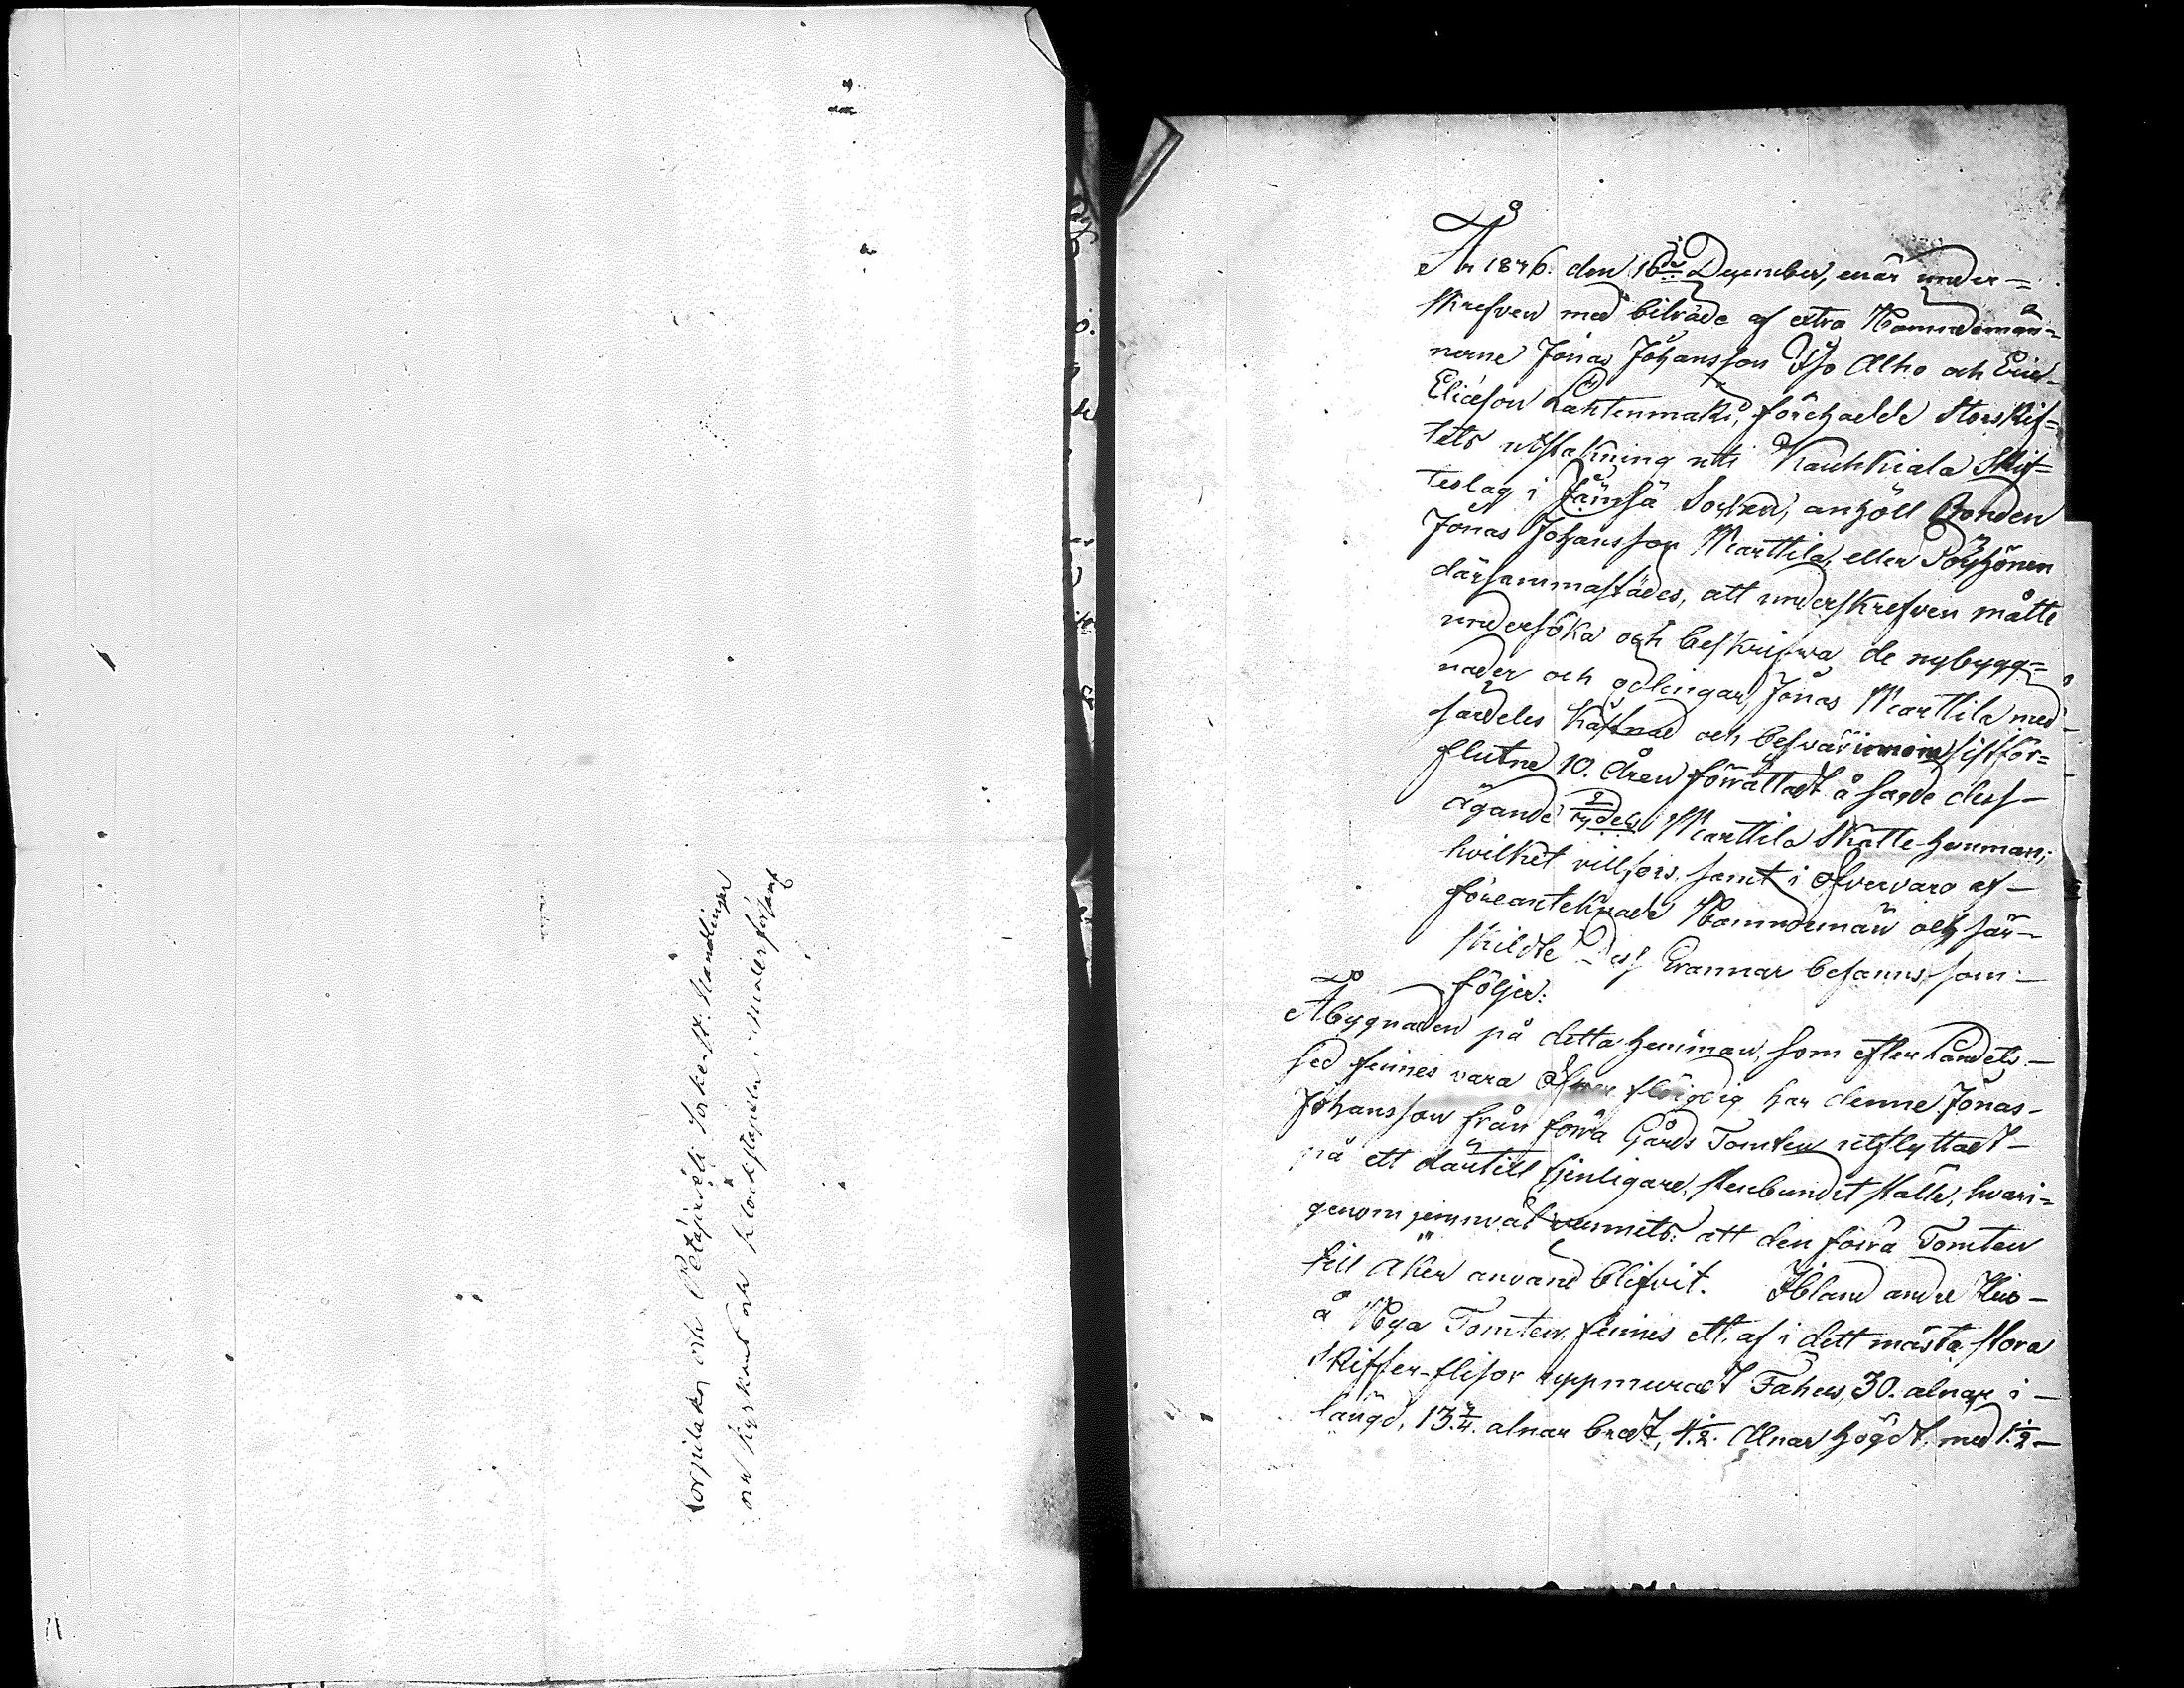 Korpilaks och Petäjävesi Socken ft: Handlingar
om kyrkans och klockstapeln
År 1846. den 16de December, enär under=
skrefven med biträde af extra Nämndemän=
nerne Jonas Johansson Yso Alho och Eric
Eliæson Lahtenmäki, förehadde Storskif=
tets utstakning uti Kauhkiala Skif=
teslag i Jämsä Socken, anhöll Bonden
Jonas Johansson Marttila, eller Pöyhönen
därsammastädes, att underskrefven måtte
undersöka och beskrifwa de nybygg=
nader och odlingar, Jonas Marttila med
särdeles kåstnad och besvär innom sistför=
flutne 10. åren förrättadt å sagde dess
ägande Marttila Skatte-hemman;
hvilket villfors, samt i öfvervaro af
föreantecknade Nämndemän och sär=
skildte af Grannar befanns som
följer:
Åbygnaden på detta hemman, som efter Landets
sed finnes vara öfver flödig har denne Jonas
Johansson från förra Gårds Tomten utflyttadt
på ett dartill tjenligare, stenbundit ställe, hvari=
genom jemwäl wunnits: att den förra Tomten
till åker använd blifvit. Ibland andre Hus
å Nya Tomten, finnes ett, af i dett mästa stora
skiffer-flisor uppmuradt Fähus, 30. alnar i
längd, 13.¾. alnar bredt, 4.½. Alnar högdt, med 1.½